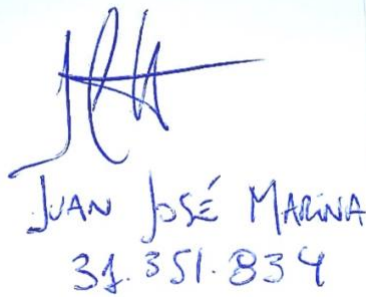 JUAN JOSÉ MARINA
31.351.834